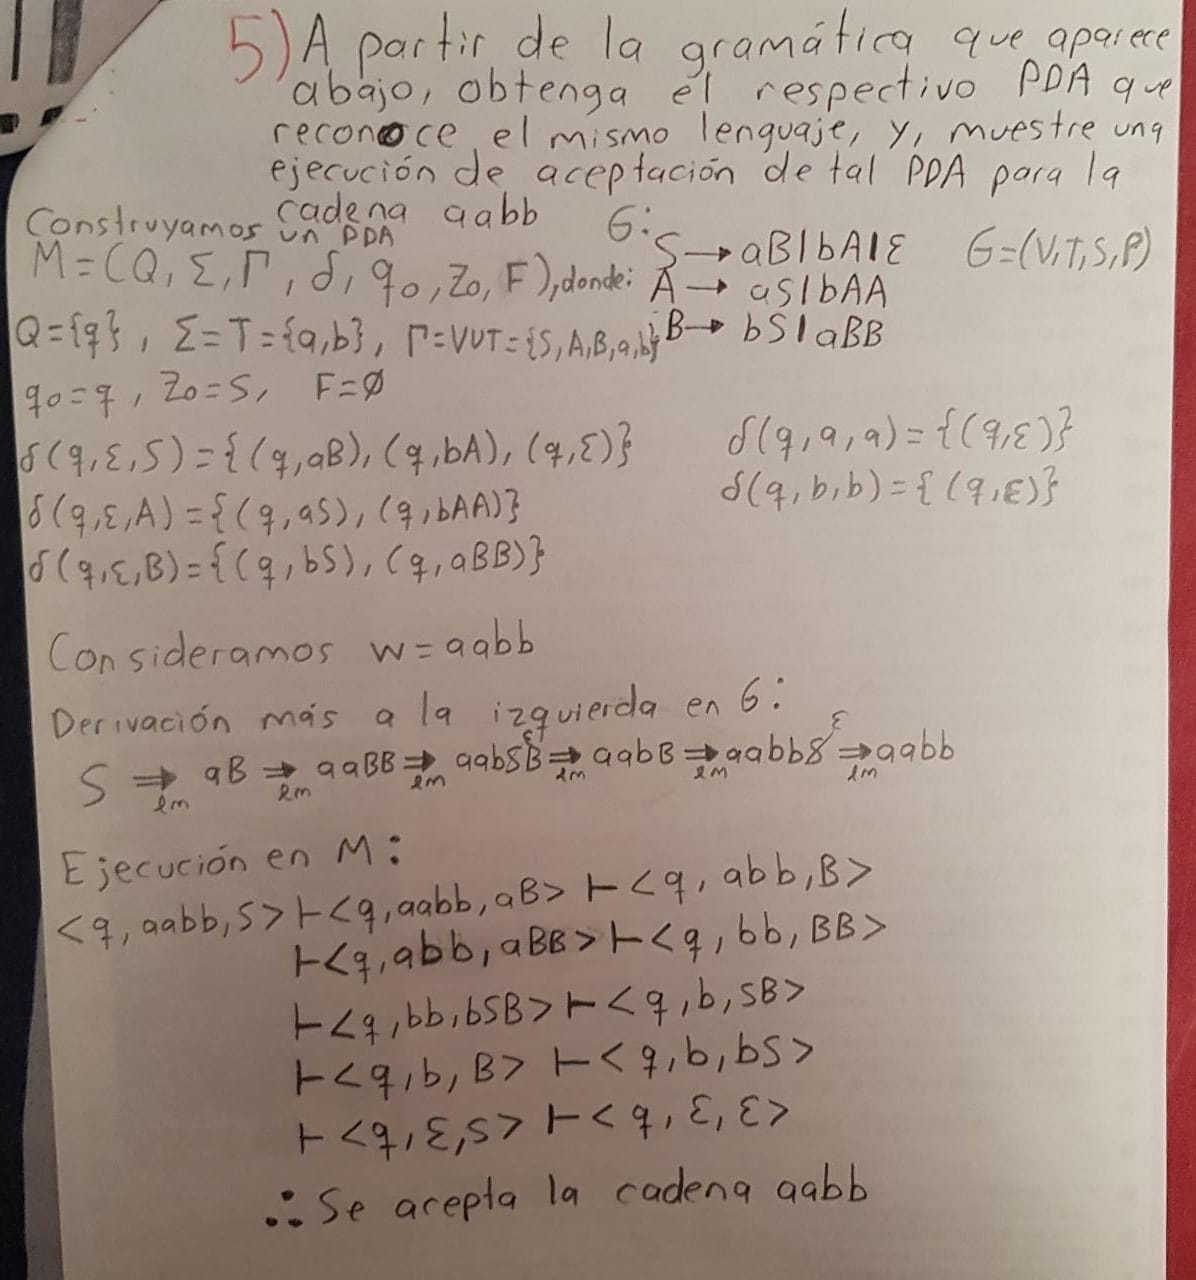 5) A partir de la gramática que aparece
abajo, obtenga el respectivo PDA que
reconoce el mismo lenguaje, y, muestre una
ejecución de aceptación de tal PDA para la
cadena aabb
Construyamos un PDA
G:
S → aB|bA|ε
G=(V,T,S,P)
M=(Q, Σ, Γ, δ, q0, Z0, F), donde:
A → aS|bAA
Q={q}, Σ=T={a,b}, Γ=VUT={S,A,B,a,b}
B → bS|aBB
q0=q, Z0=S, F=∅
δ(q,ε,S)={(q,aB),(q,bA),(q,ε)}
δ(q,a,a)={(q,ε)}
δ(q,ε,A)={(q,aS),(q,bAA)}
δ(q,b,b)={(q,ε)}
δ(q,ε,B)={(q,bS),(q,aBB)}
Consideramos w=aabb
Derivación más a la izquierda en G:
S ⇒lm aB ⇒lm aaBB ⇒lm aabSB ⇒lm aabB ⇒lm aabbS ⇒lm aabb
ε
ε
Ejecución en M:
<q, aabb, S> ⊢ <q, aabb, aB> ⊢ <q, abb, B>
⊢ <q, abb, aBB> ⊢ <q, bb, BB>
⊢ <q, bb, bSB> ⊢ <q, b, SB>
⊢ <q, b, B> ⊢ <q, b, bS>
⊢ <q, ε, S> ⊢ <q, ε, ε>
∴ Se acepta la cadena aabb